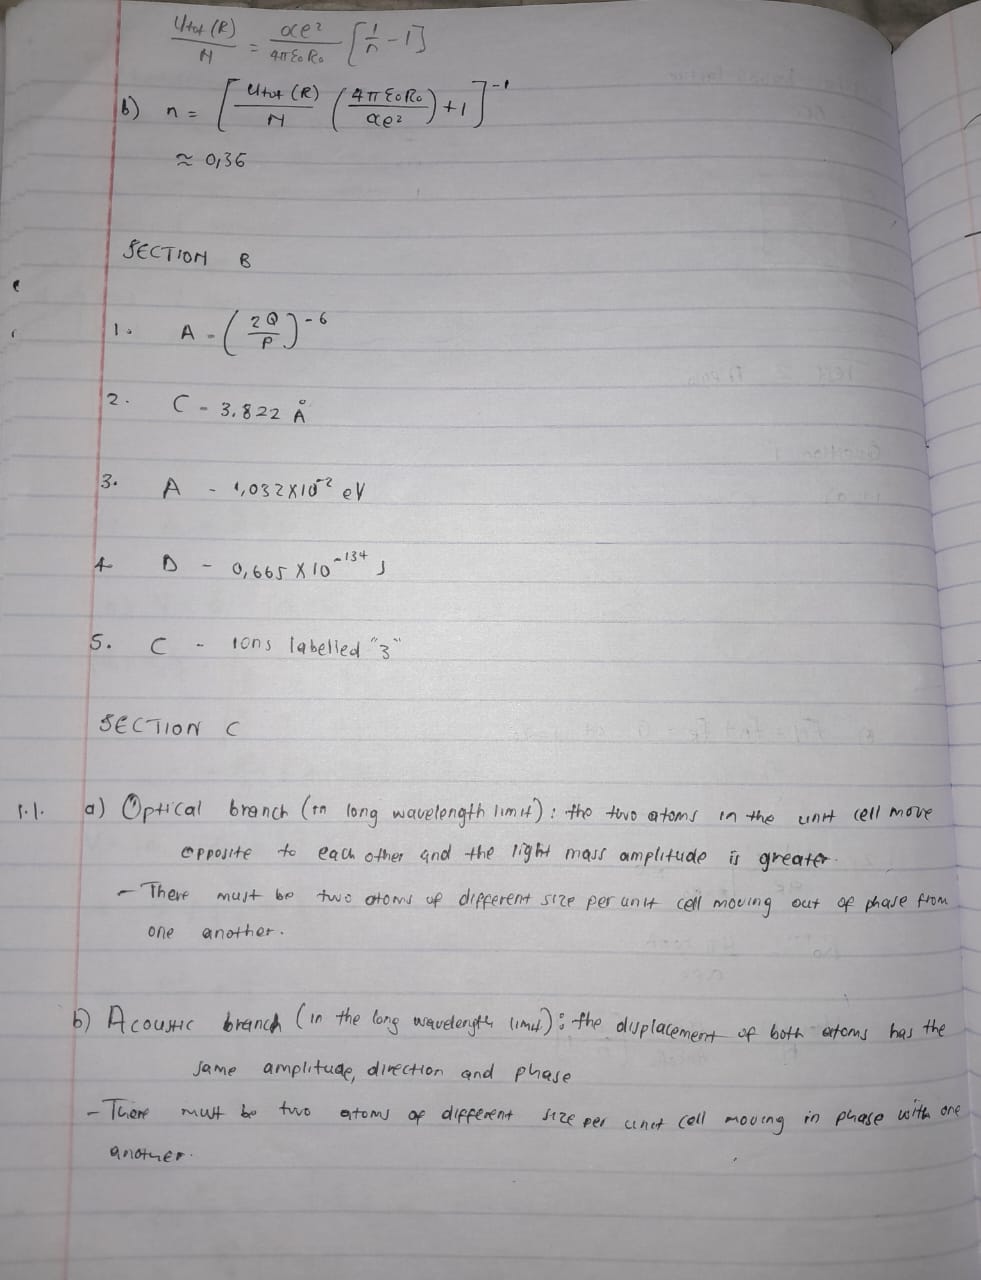 Utot (R)/N = αe²/4πε₀R₀ [1/n - 1]
b) n = [Utot (R)/N (4πε₀R₀/αe²) + 1]⁻¹
≈ 0,36
SECTION B
1. A - (2Q/P)⁻⁶
2. C - 3,822 Å
3. A - 1,032 X 10⁻² eV
4 D - 0,665 X 10⁻¹³⁴ J
5. C - Ions labelled "3"
SECTION C
1.1. a) Optical branch (in long wavelength limit) : the two atoms in the unit cell move
opposite to each other and the light mass amplitude is greater.
- There must be two atoms of different size per unit cell moving out of phase from
one another.
b) Acoustic branch (in the long wavelength limit) : the displacement of both atoms has the
same amplitude, direction and phase
- There must be two atoms of different size per unit cell moving in phase with one
another.